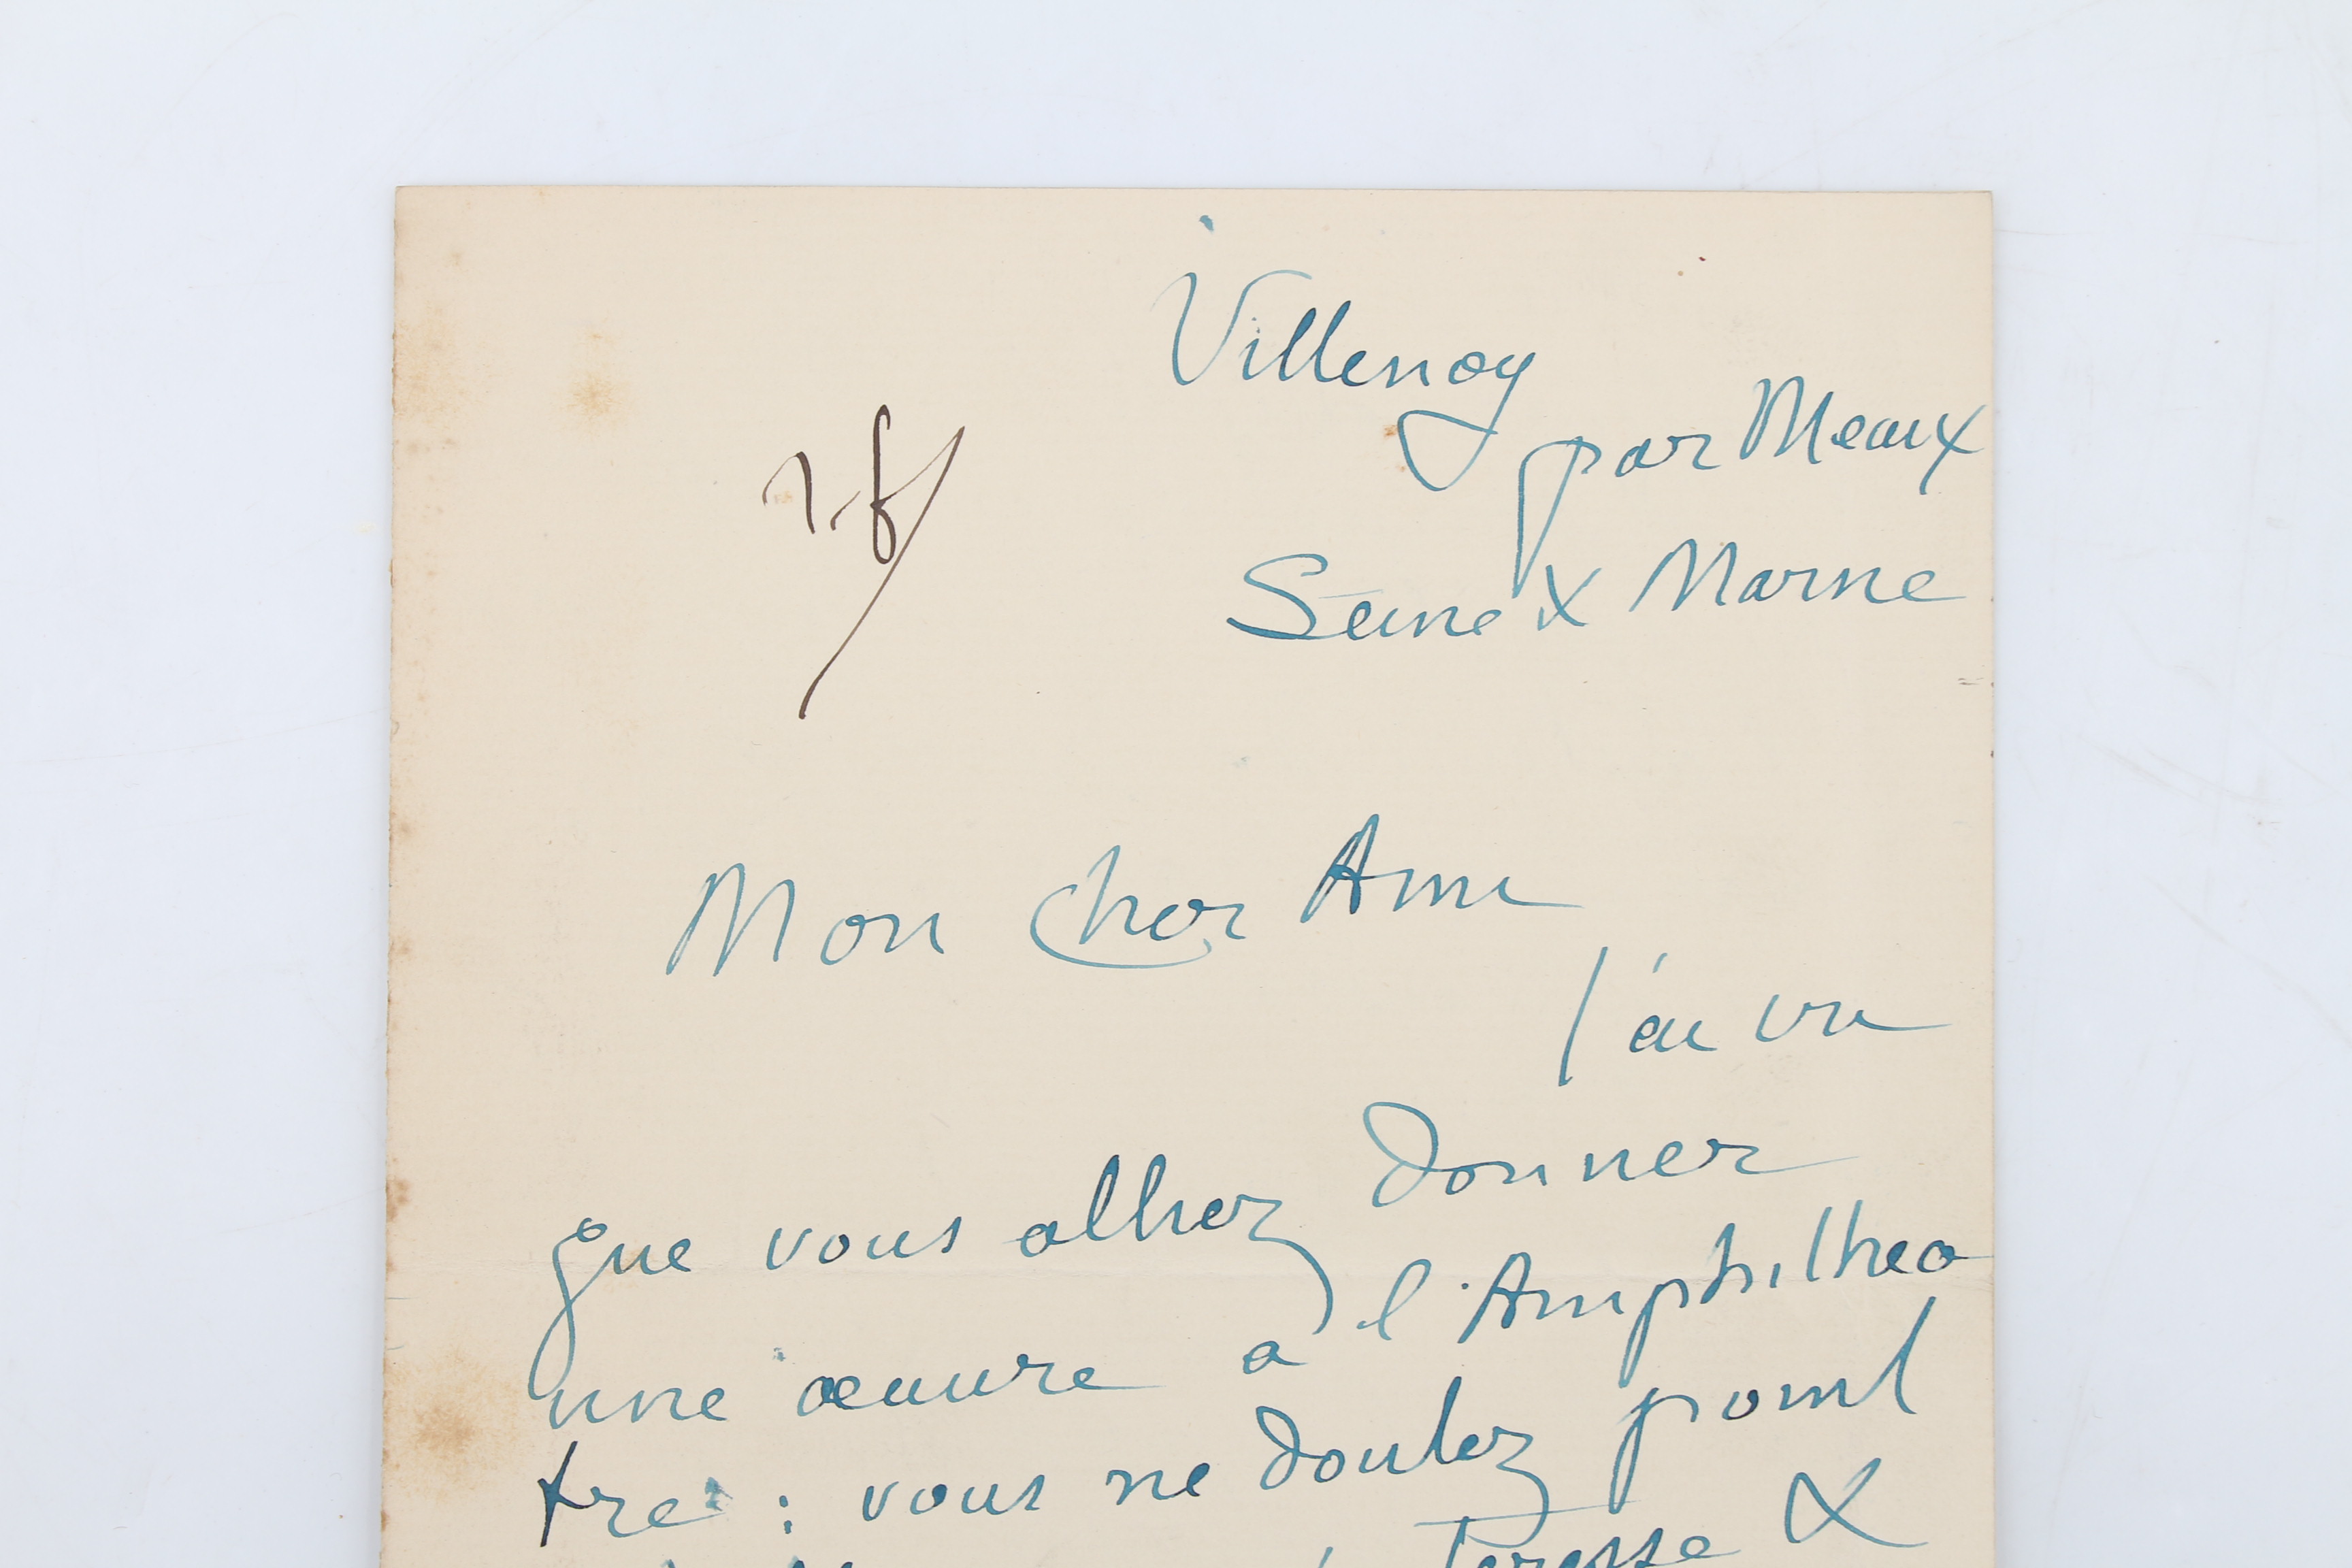 Villenoy
par Meaux
Seine & Marne
Mon cher Ami
J'ai vu
que vous alliez donner
une œuvre a l'Amphithea
tre : vous ne doutez point
&